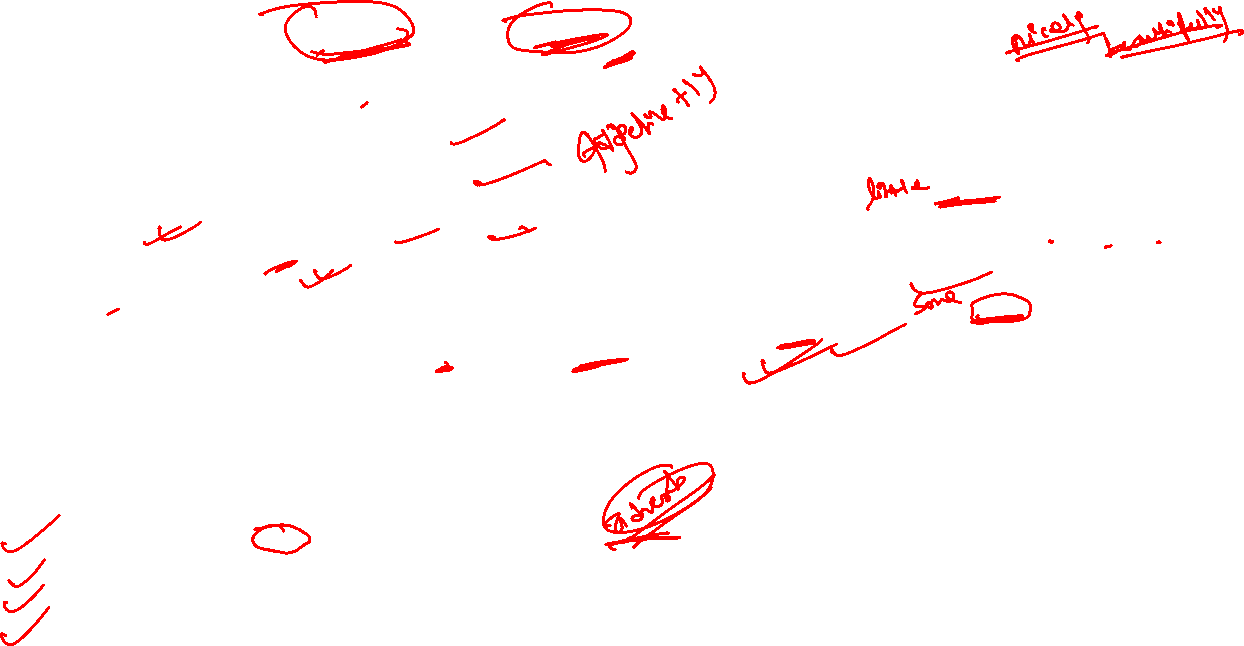 nicely beautifully
Adjective + ly
little
some
adverb